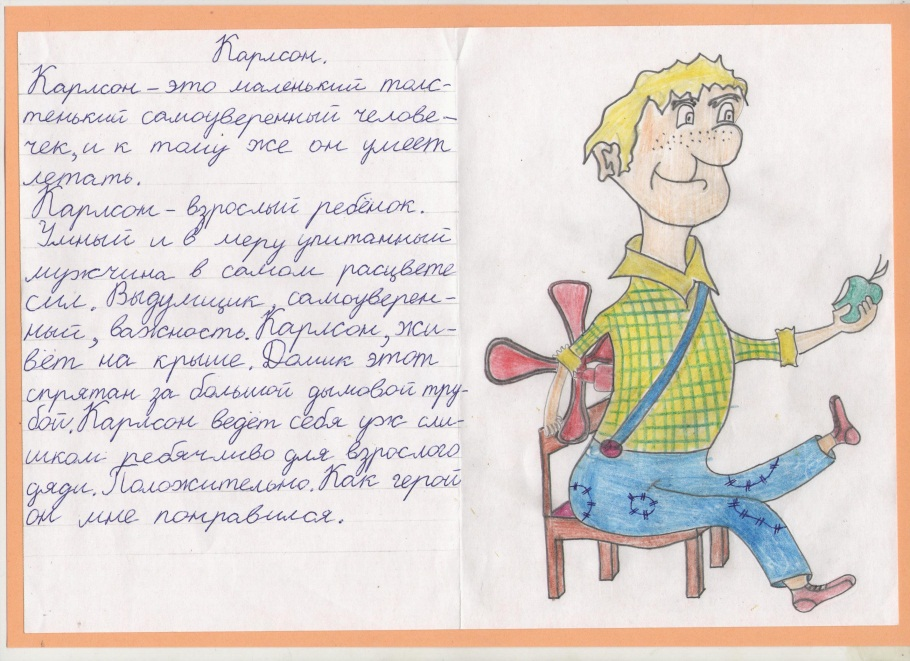 Карлсон.
Карлсон - это маленький толс-
тенький самоуверенный челове-
чек, и к тому же он умеет
летать.
Карлсон - взрослый ребёнок.
Умный и в меру упитанный
мужчина в самом расцвете
сил. Выдумщик, самоуверен-
ный, важность. Карлсон, жи-
вёт на крыше. Домик этот
спрятан за большой дымовой тру-
бой. Карлсон ведёт себя уж сли-
шком ребячливо для взрослого
дяди. Положительно. Как герой
он мне понравился.